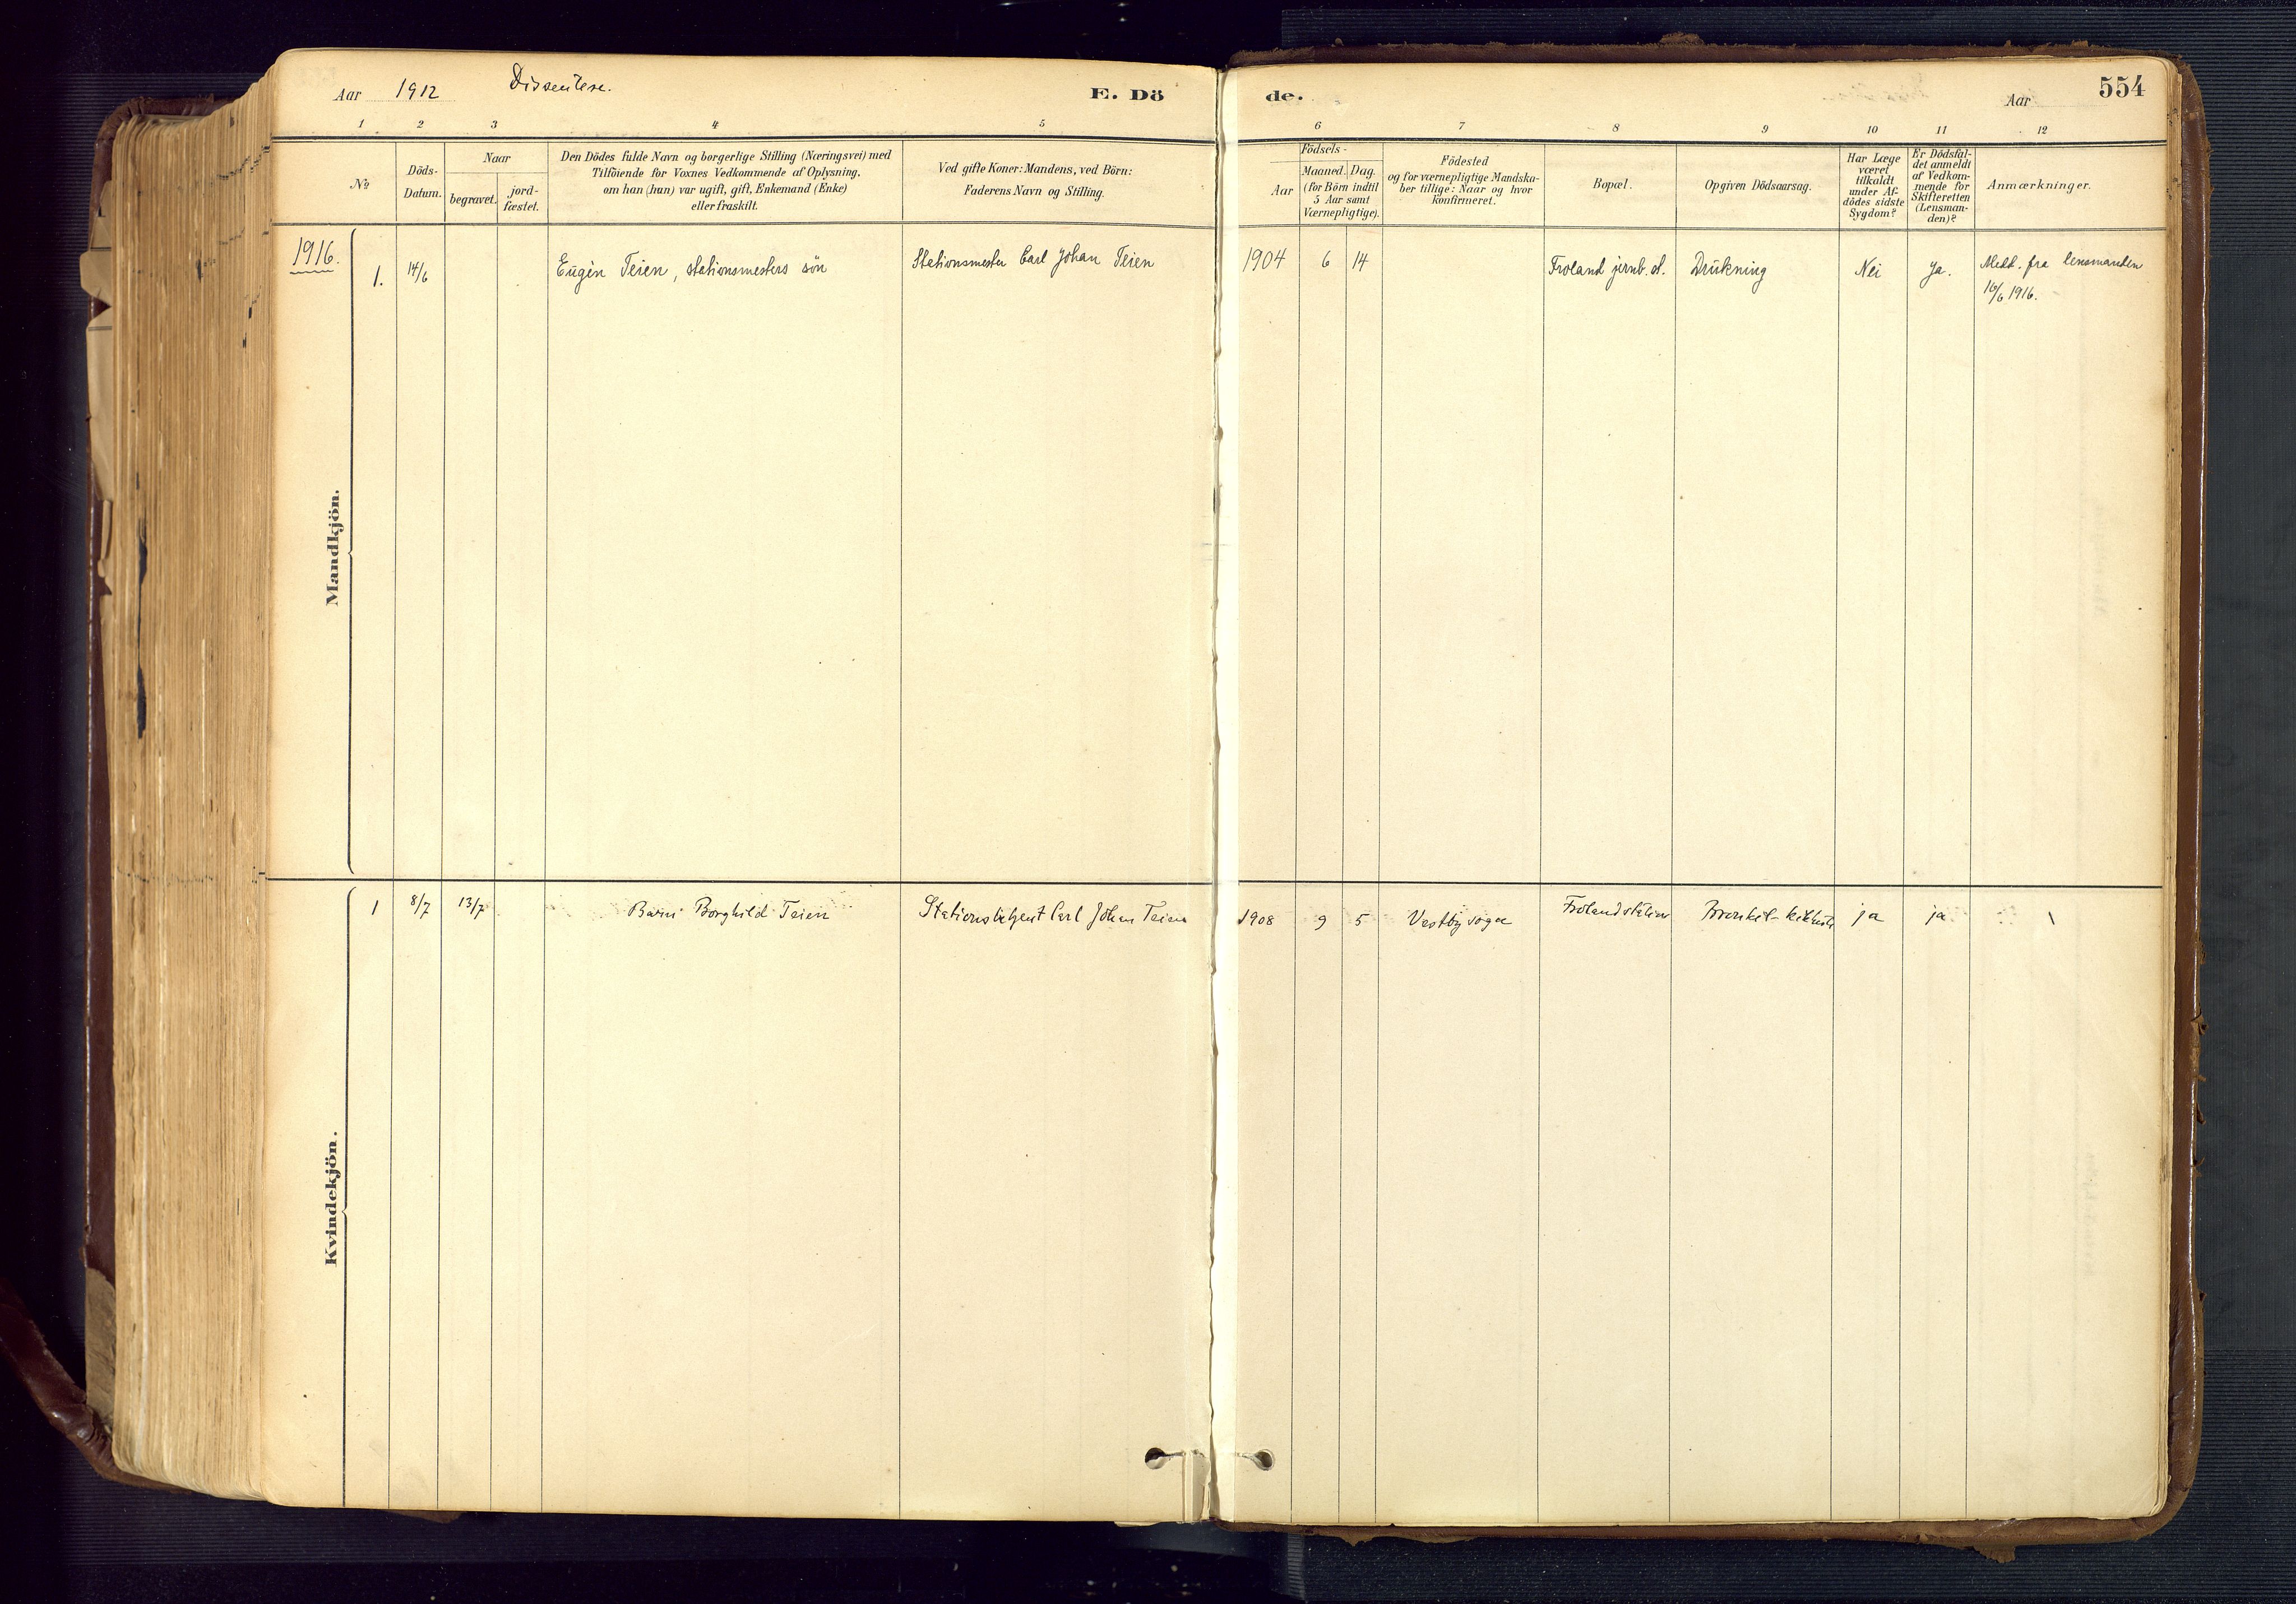 Aar 1912 Dissentere. E. Dö de. Aar 554
1 2 3 4 5 6 7 8 9 10 11 12
No
Döds-
Datum.
Naar
begravet.
jord-
fæstet.
Den Dödes fulde Navn og borgerlige Stilling (Næringsvei) med
Tilföiende for Voxnes Vedkommende af Oplysning,
om han (hun) var ugift, gift, Enkemand (Enke)
eller fraskilt.
Ved gifte Koner: Mandens, ved Börn:
Faderens Navn og Stilling.
Födsels-
Aar
Maaned. Dag.
(for Börn indtil
5 Aar samt
Værnepligtige).
Födested
og for værnepligtige Mandska-
ber tillige: Naar og hvor
konfirmeret.
Bopæl.
Opgiven Dödsaarsag.
Har Læge
været
tilkaldt
under Af-
dödes sidste
Sygdom?
Er Dödsfal-
det anmeldt
af Vedkom-
mende for
Skifteretten
(Lensman-
den)?
Anmærkninger.
Mandkjön.
1916.
1. 14/6 Eugèn Teien, stationsmesters søn Stationsmester Carl Johan Teien 1904 6 14 Froland jernb. st. Drukning Nei Ja. Medd. fra lensmanden
16/6 1916.
Kvindekjön.
1 8/7 13/7 Borghild Teien Carl Johan Teien 1908 9 5 Vestby sogn Froland station ja ja